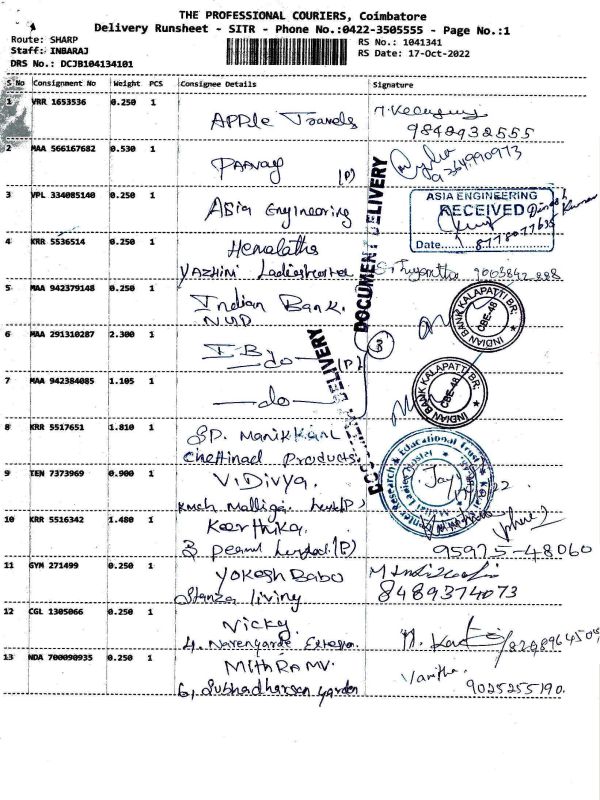 THE PROFESSIONAL COURIERS, Coimbatore
Delivery Runsheet - SITR - Phone No.:0422-3505555 - Page No.:1
Route: SHARP
RS No.: 1041341
Staff: INBARAJ
RS Date: 17-Oct-2022
DRS No.: DCJB104134101
S No Consignment No Weight PCS Consignee Details Signature
1 VRR 1653536 0.250 1
Apple Travels
9840932555
2 MAA 566167682 0.530 1
PAAVAY (P)
9364990973
3 VPL 334085140 0.250 1
Asia Engineering
ASIA ENGINEERING
RECEIVED
Date
8778077635
4 KRR 5536514 0.250 1
Hemalatha
YAZHINI
9003842888
5 MAA 942379148 0.250 1
Indian Bank.
INDIAN BANK KALAPATTI BR:
CBE-48
6 MAA 291310287 2.300 1
do (P)
3
7 MAA 942384085 1.105 1
do
INDIAN BANK KALAPATTI BR:
CBE-48
DOCUMENT DELIVERY
DOCUMENT DELIVERY
8 KRR 5517651 1.810 1
SP. Manikkam
Chettinad Products.
9 TEN 7373969 0.900 1
V. Divya.
Kmch Malligai (P)
10 KRR 5516342 1.480 1
Keerthika.
3 (P)
95975-48060
11 GYM 271499 0.250 1
YOKESH Babu
Stanza living
8489374073
12 CGL 1305066 0.250 1
Nicky
13 NDA 700090935 0.250 1
MITHRA MV.
Vanitha.
9025255190.